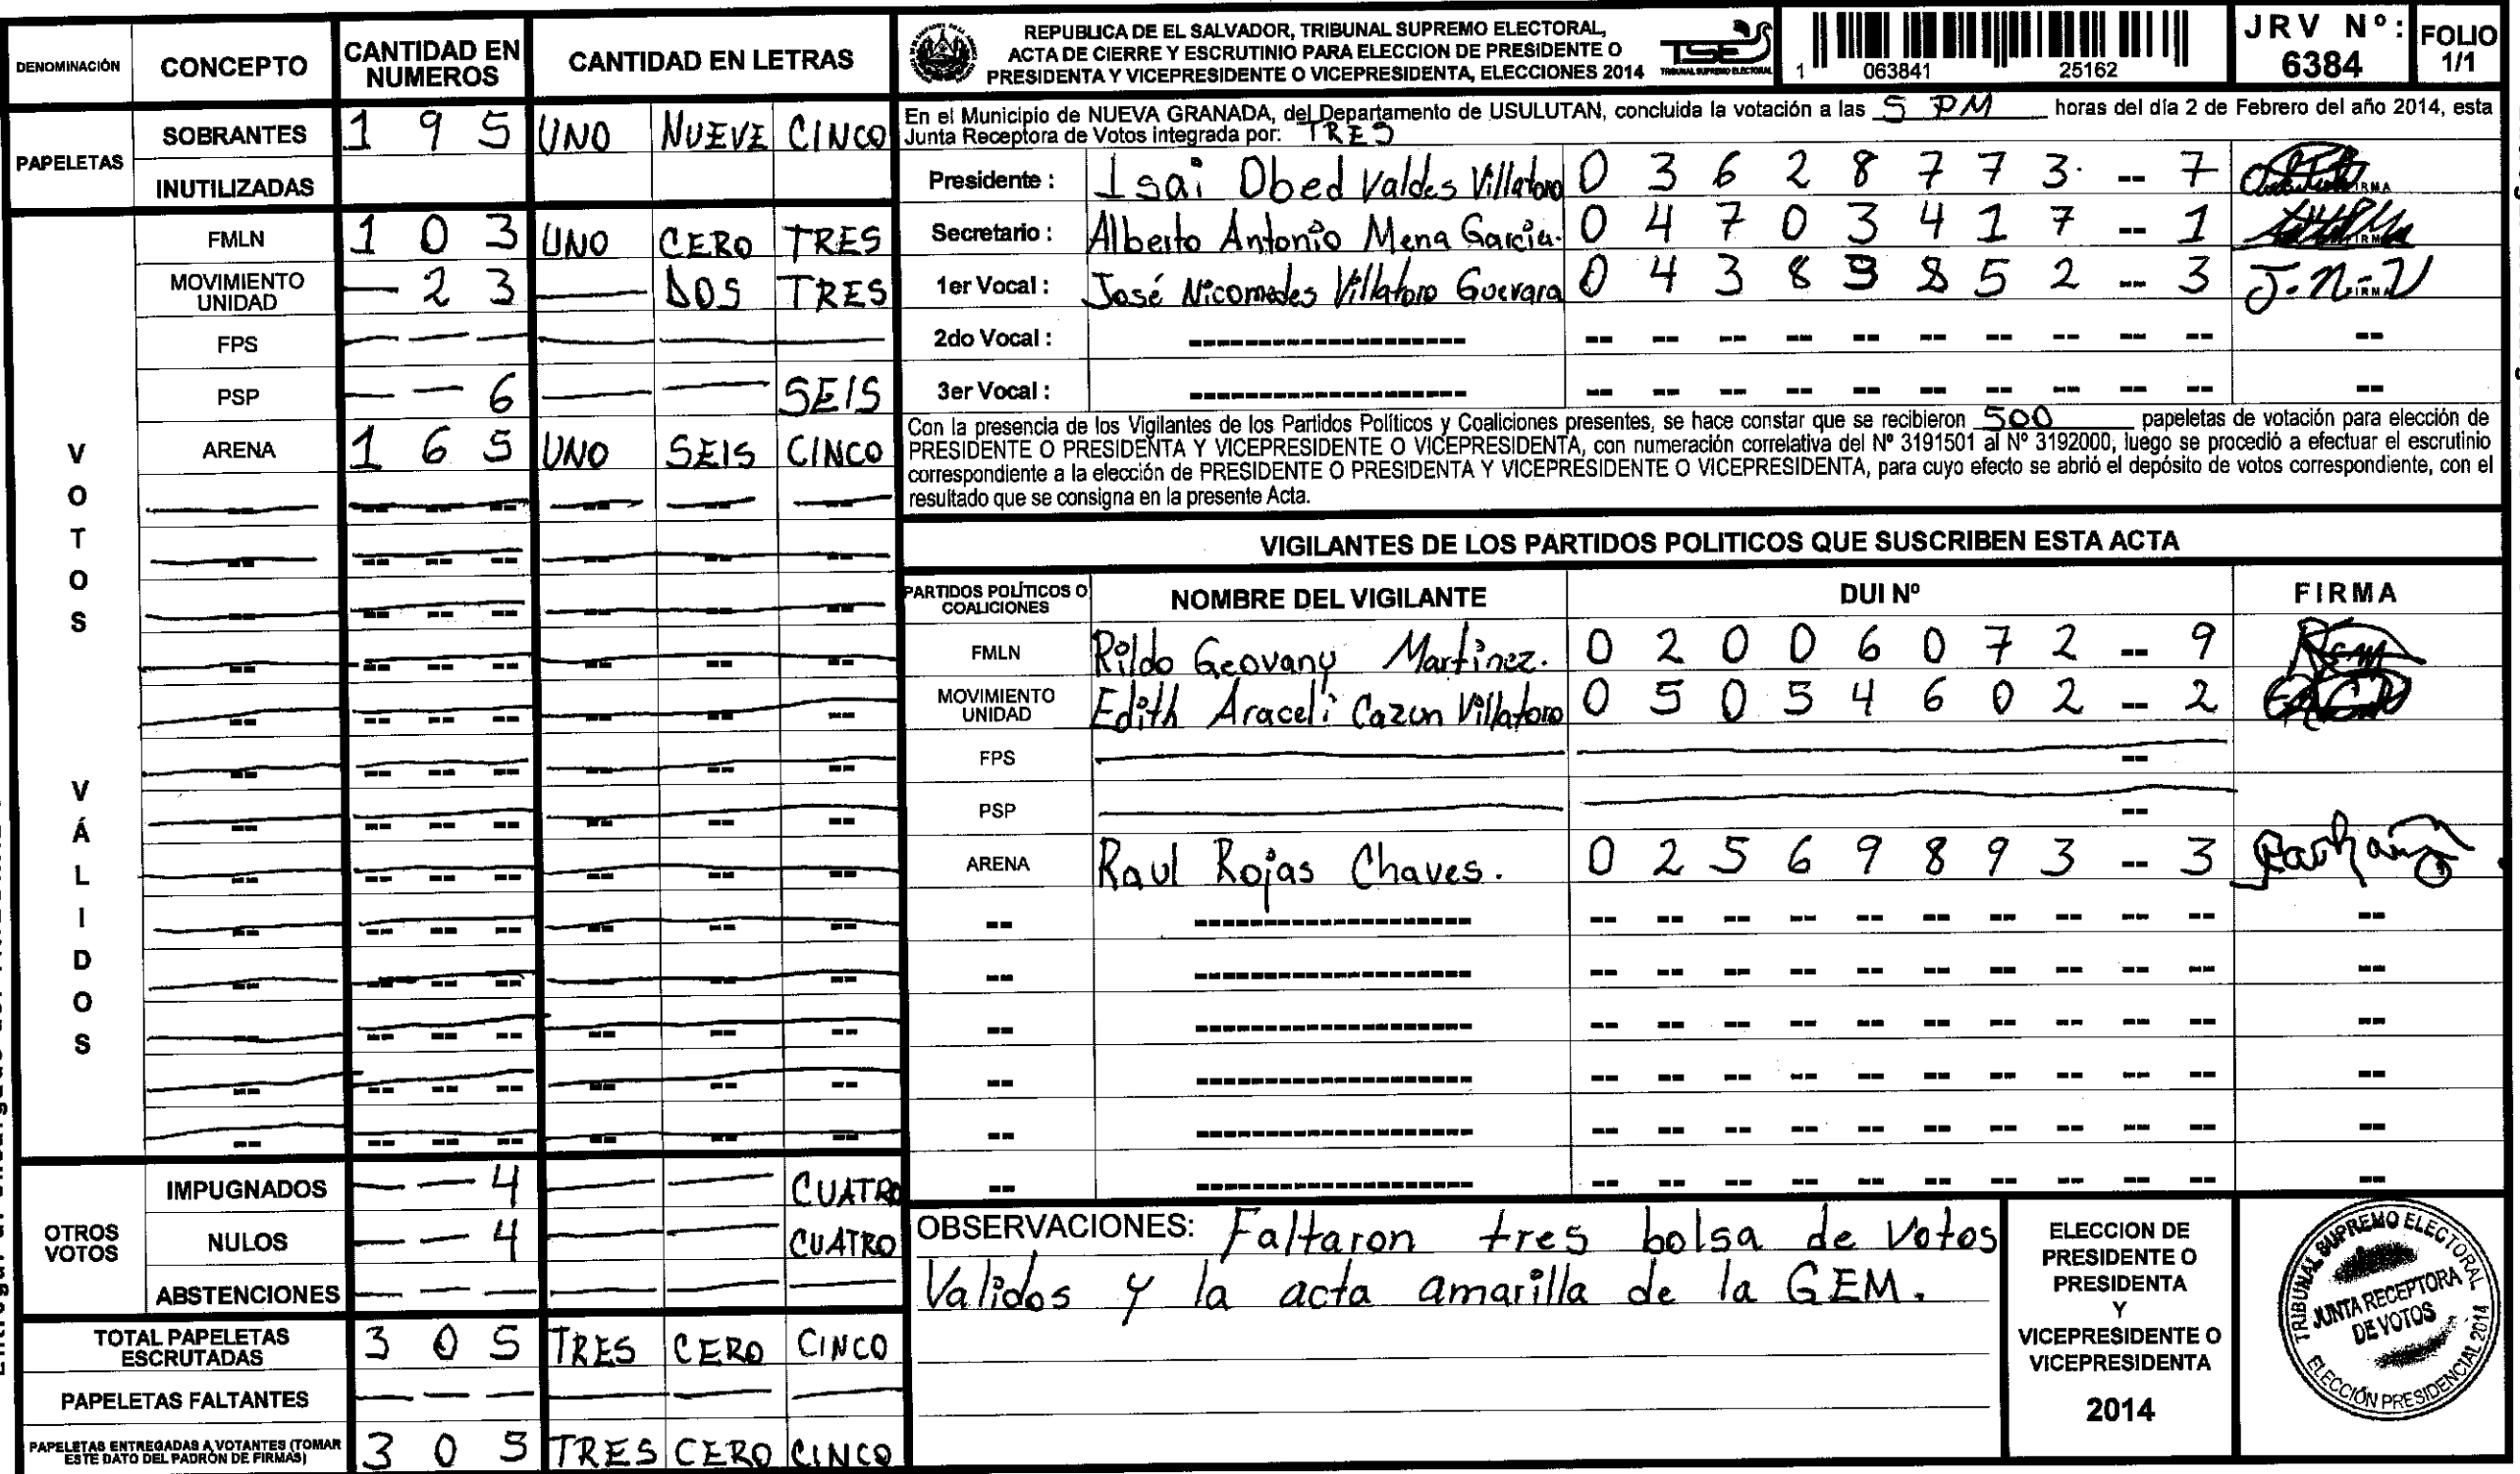 DENOMINACIÓN CONCEPTO CANTIDAD EN NUMEROS CANTIDAD EN LETRAS
PAPELETAS
SOBRANTES 1 9 5 UNO NUEVE CINCO
INUTILIZADAS
VOTOS VÁLIDOS
FMLN 1 0 3 UNO CERO TRES
MOVIMIENTO UNIDAD — 2 3 — DOS TRES
FPS — — — — — —
PSP — — 6 — — SEIS
ARENA 1 6 5 UNO SEIS CINCO
OTROS VOTOS
IMPUGNADOS — — 4 — — CUATRO
NULOS — — 4 — — CUATRO
ABSTENCIONES — — — — — —
TOTAL PAPELETAS ESCRUTADAS 3 0 5 TRES CERO CINCO
PAPELETAS FALTANTES — — — — — —
PAPELETAS ENTREGADAS A VOTANTES (TOMAR ESTE DATO DEL PADRÓN DE FIRMAS) 3 0 5 TRES CERO CINCO
REPUBLICA DE EL SALVADOR, TRIBUNAL SUPREMO ELECTORAL,
ACTA DE CIERRE Y ESCRUTINIO PARA ELECCION DE PRESIDENTE O
PRESIDENTA Y VICEPRESIDENTE O VICEPRESIDENTA, ELECCIONES 2014
TSE
TRIBUNAL SUPREMO ELECTORAL
1 063841 25162
JRV Nº: 6384
FOLIO 1/1
En el Municipio de NUEVA GRANADA, del Departamento de USULUTAN, concluida la votación a las 5 PM horas del día 2 de Febrero del año 2014, esta
Junta Receptora de Votos integrada por: TRES
Presidente : Isai Obed Valdes Villatoro 0 3 6 2 8 7 7 3 -- 7
Secretario : Alberto Antonio Mena Garcia. 0 4 7 0 3 4 1 7 -- 1
1er Vocal : José Nicomedes Villatoro Guevara 0 4 3 8 9 8 5 2 -- 3 J.N.V
2do Vocal :
3er Vocal :
Con la presencia de los Vigilantes de los Partidos Políticos y Coaliciones presentes, se hace constar que se recibieron 500 papeletas de votación para elección de
PRESIDENTE O PRESIDENTA Y VICEPRESIDENTE O VICEPRESIDENTA, con numeración correlativa del Nº 3191501 al Nº 3192000, luego se procedió a efectuar el escrutinio
correspondiente a la elección de PRESIDENTE O PRESIDENTA Y VICEPRESIDENTE O VICEPRESIDENTA, para cuyo efecto se abrió el depósito de votos correspondiente, con el
resultado que se consigna en la presente Acta.
VIGILANTES DE LOS PARTIDOS POLITICOS QUE SUSCRIBEN ESTA ACTA
PARTIDOS POLÍTICOS O COALICIONES NOMBRE DEL VIGILANTE DUI Nº FIRMA
FMLN Rildo Geovany Martinez. 0 2 0 0 6 0 7 2 -- 9
MOVIMIENTO UNIDAD Edith Araceli Cazun Villatoro 0 5 0 5 4 6 0 2 -- 2
FPS
PSP
ARENA Raul Rojas Chaves. 0 2 5 6 9 8 9 3 -- 3
OBSERVACIONES: Faltaron tres bolsa de Votos
Validos y la acta amarilla de la GEM.
ELECCION DE
PRESIDENTE O
PRESIDENTA
Y
VICEPRESIDENTE O
VICEPRESIDENTA
2014
TRIBUNAL SUPREMO ELECTORAL
JUNTA RECEPTORA
DE VOTOS
ELECCIÓN PRESIDENCIAL 2014